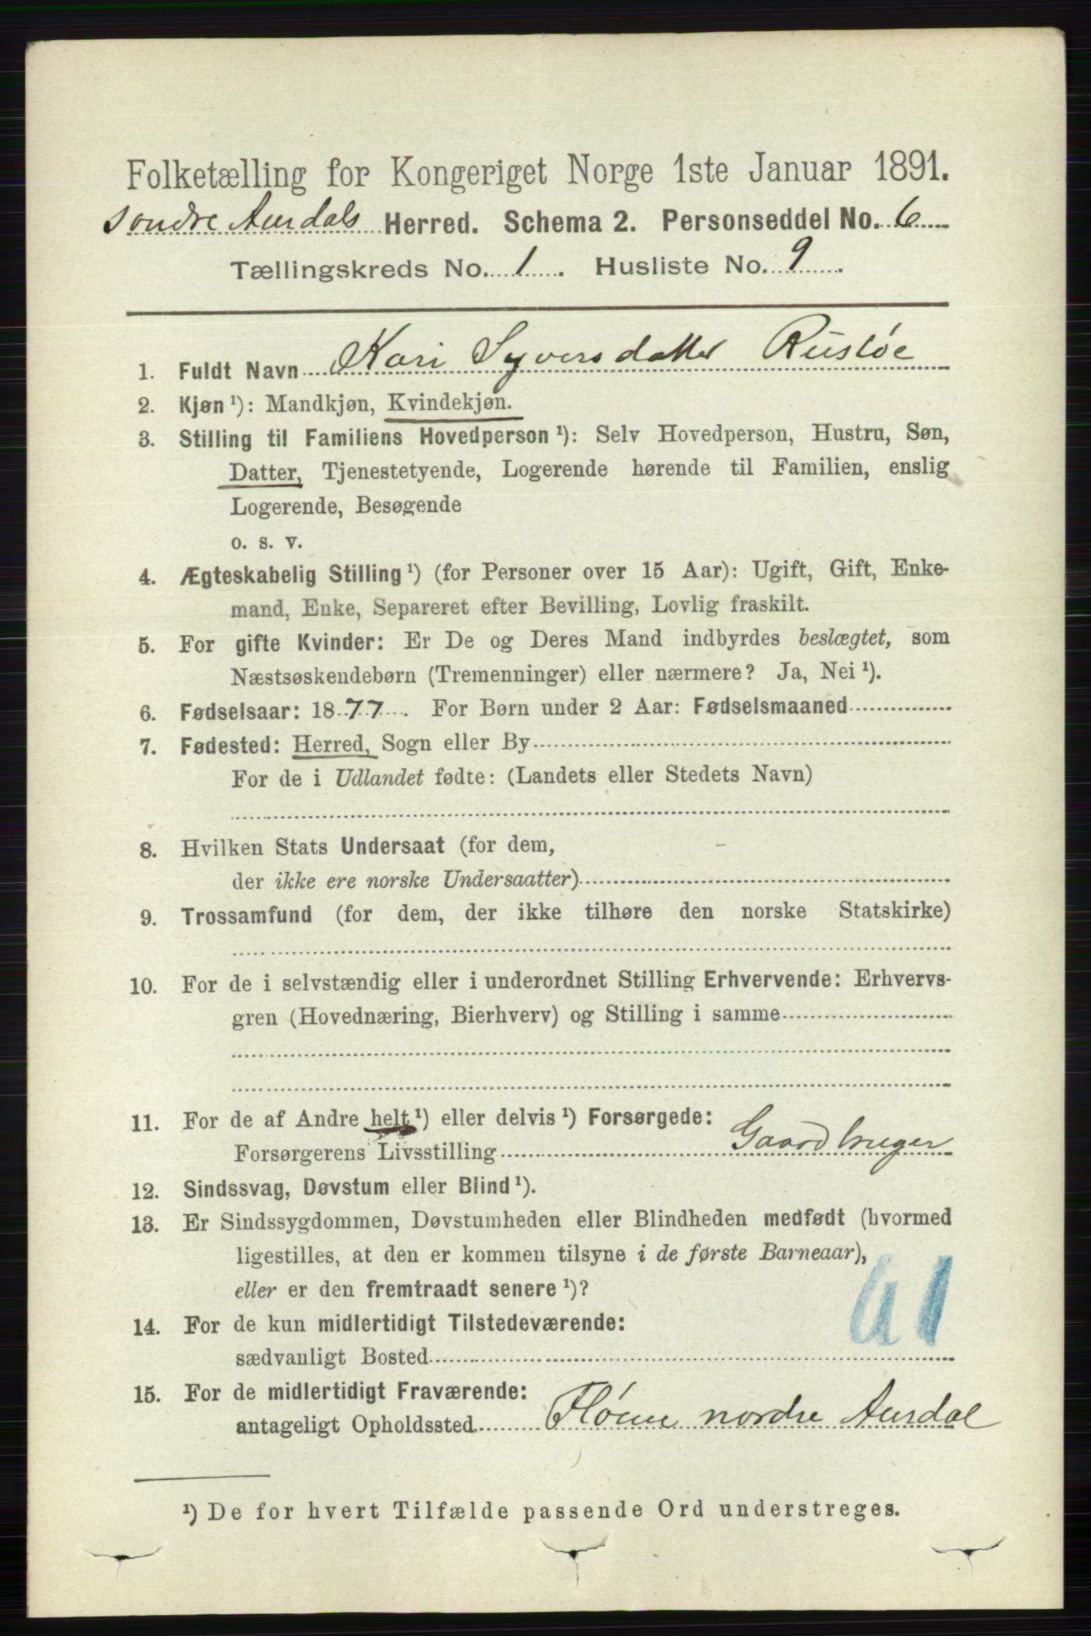 Folketælling for Kongeriget Norge 1ste Januar 1891.
Søndre Aurdals Herred. Schema 2. Personseddel No. 6
Tællingskreds No. 1. Husliste No. 9.
1. Fuldt Navn Kari Syversdatter Rustøe
2. Kjøn ¹): Mandkjøn, Kvindekjøn.
3. Stilling til Familiens Hovedperson ¹): Selv Hovedperson, Hustru, Søn,
Datter, Tjenestetyende, Logerende hørende til Familien, enslig
Logerende, Besøgende
o. s. v.
4. Ægteskabelig Stilling ¹) (for Personer over 15 Aar): Ugift, Gift, Enke-
mand, Enke, Separeret efter Bevilling, Lovlig fraskilt.
5. For gifte Kvinder: Er De og Deres Mand indbyrdes beslægtet, som
Næstsøskendebørn (Tremenninger) eller nærmere? Ja, Nei ¹).
6. Fødselsaar: 1877. For Børn under 2 Aar: Fødselsmaaned
7. Fødested: Herred, Sogn eller By
For de i Udlandet fødte: (Landets eller Stedets Navn)
8. Hvilken Stats Undersaat (for dem,
der ikke ere norske Undersaatter)
9. Trossamfund (for dem, der ikke tilhøre den norske Statskirke)
10. For de i selvstændig eller i underordnet Stilling Erhvervende: Erhvervs-
gren (Hovednæring, Bierhverv) og Stilling i samme
11. For de af Andre helt ¹) eller delvis ¹) Forsørgede:
Forsørgerens Livsstilling Gaardbruger
12. Sindssvag, Døvstum eller Blind ¹).
13. Er Sindssygdommen, Døvstumheden eller Blindheden medfødt (hvormed
ligestilles, at den er kommen tilsyne i de første Barneaar),
eller er den fremtraadt senere ¹)?
14. For de kun midlertidigt Tilstedeværende:
sædvanligt Bosted
15. For de midlertidigt Fraværende:
antageligt Opholdssted nordre Aurdal
¹) De for hvert Tilfælde passende Ord understreges.